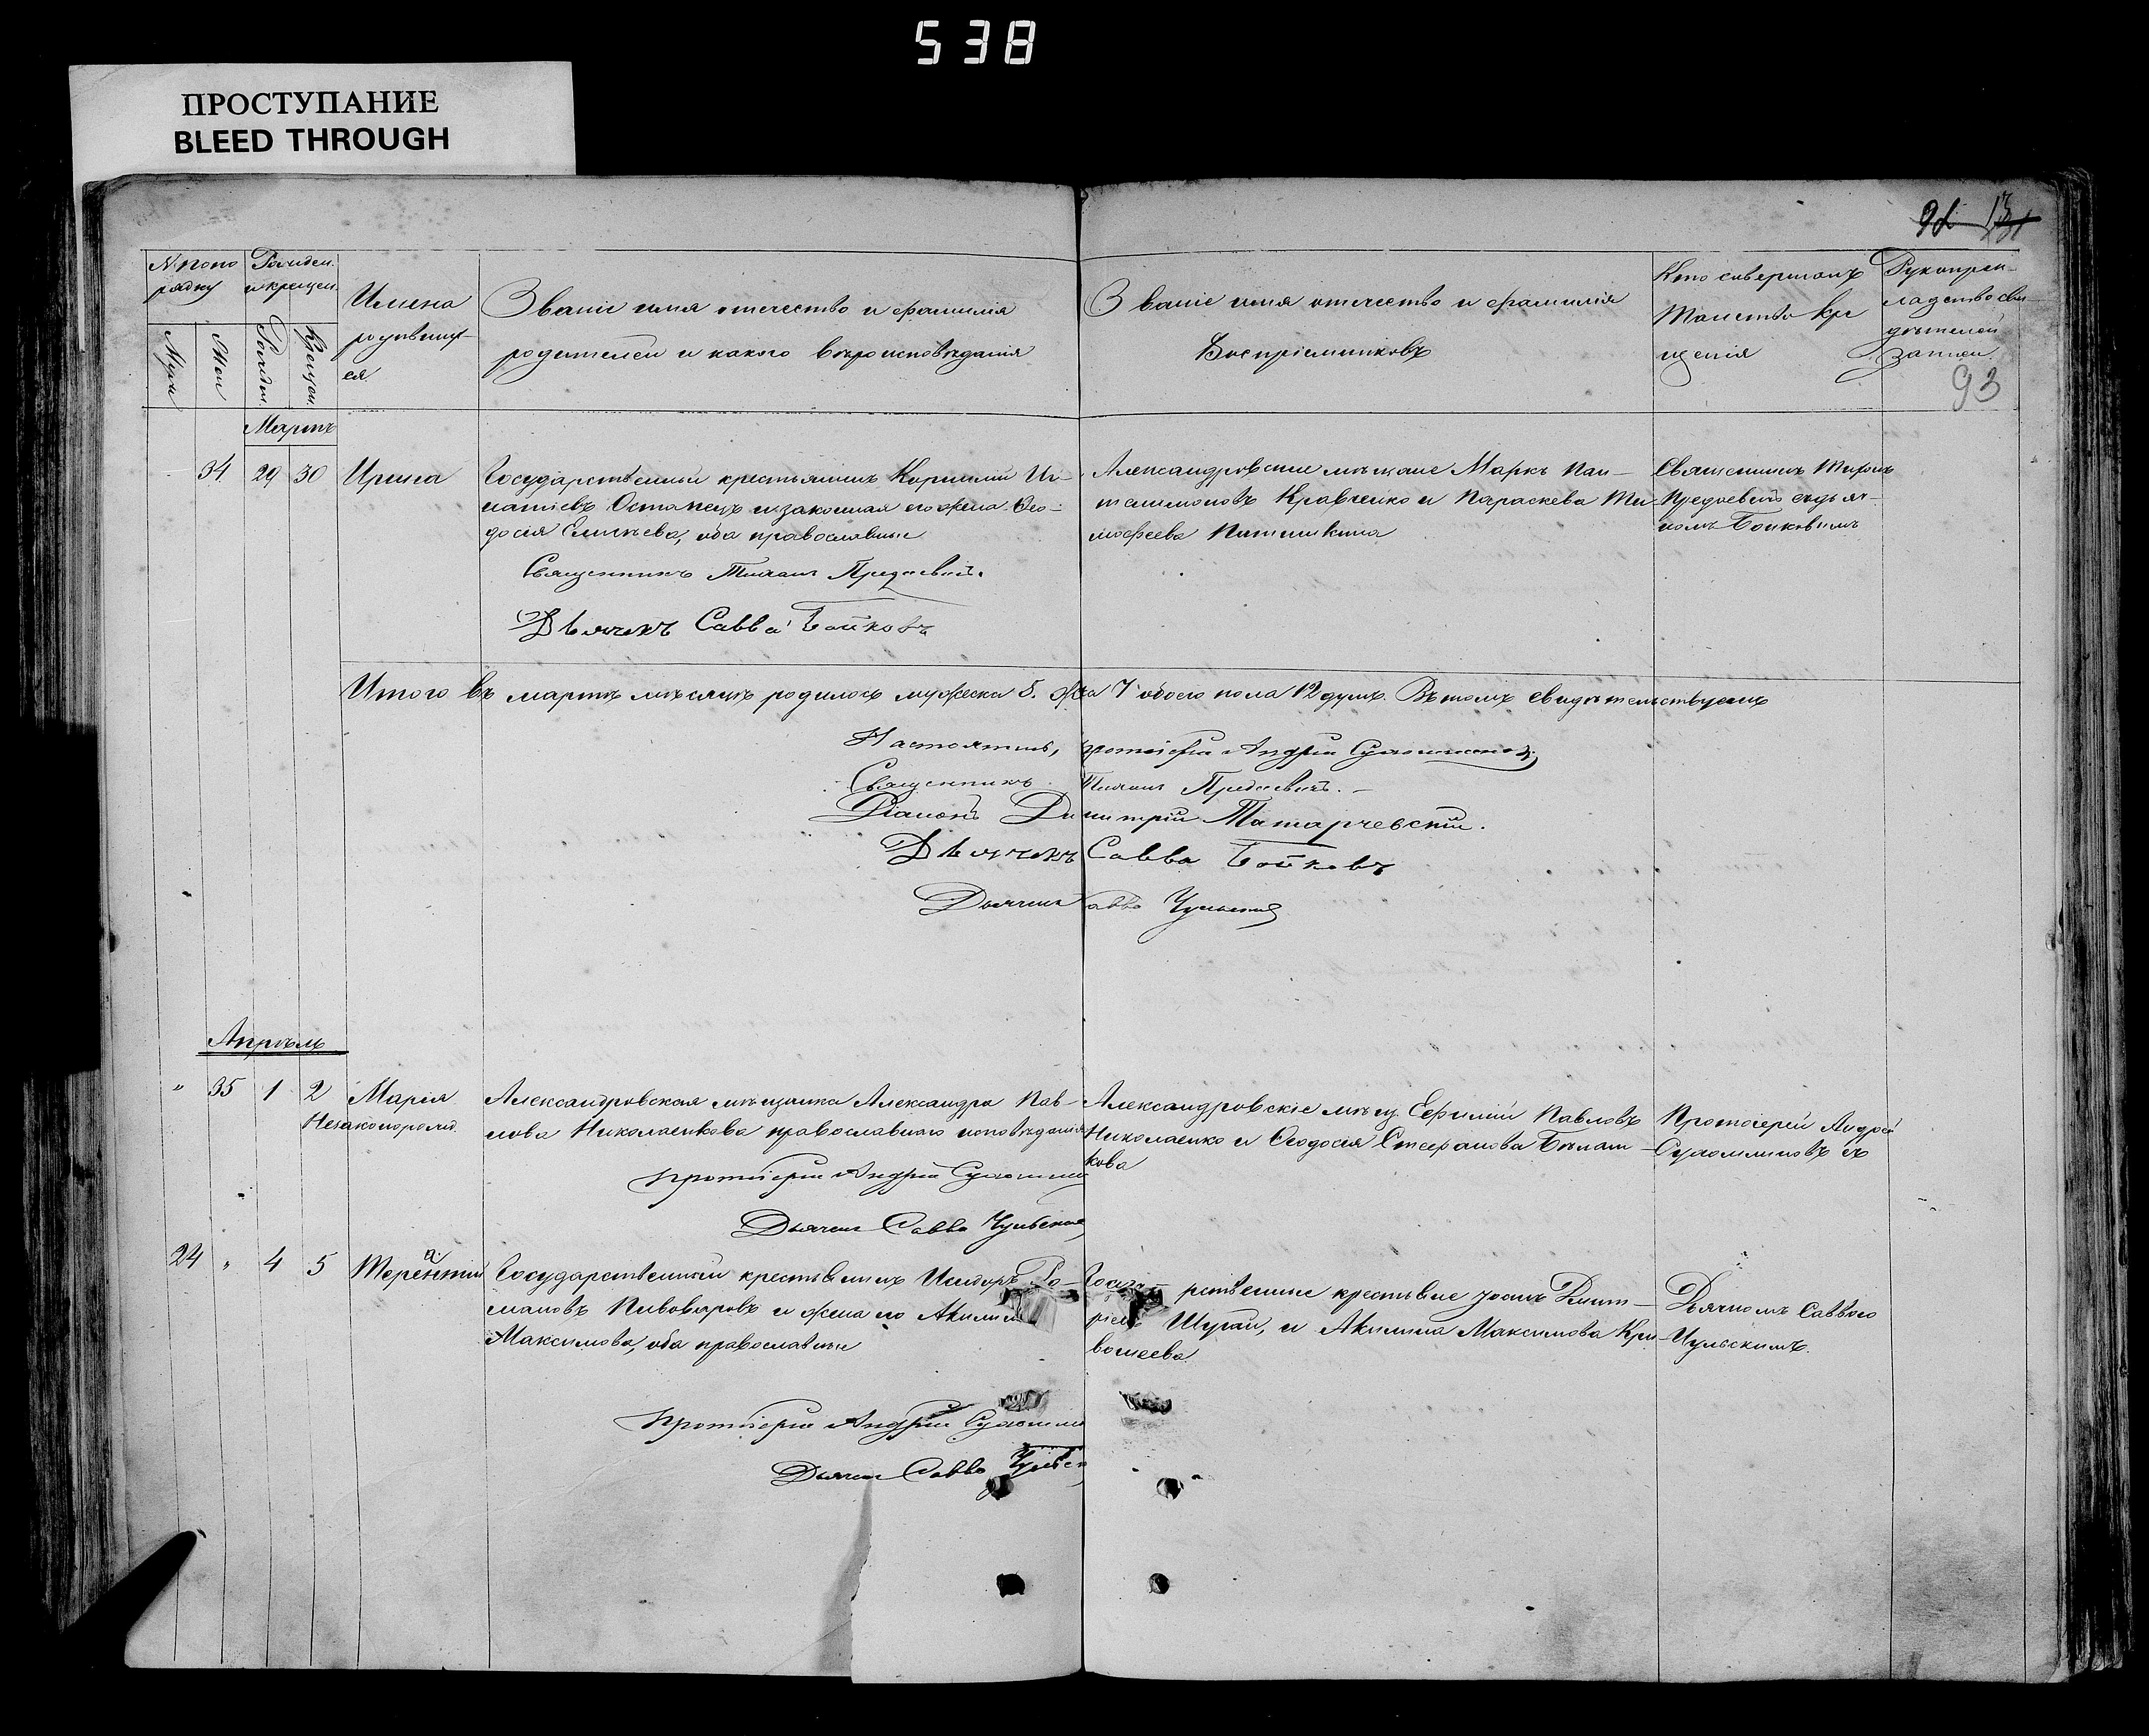 538
ПРОСТУПАНИЕ
BLEED THROUGH
№ по по
рядку
Рожден.
и крещен.
Муж
Жен
Рожден.
Крещен.
Имена
родивших-
ся.
Званіе имя отечество и фамилія
родителей и какого вѣроисповѣданія
Званіе имя отечество и фамилія
Воспріемниковъ
Кто совершалъ
таинство кре
щенія
Рукоприк-
ладство сви-
дѣтелей
записи.
93
Мартъ
34 29 30 Ирина
Государственный крестьянинъ Корнилій Иг-
натіевъ Остапецъ и законная его жена Ѳео-
досія Елисѣева, оба православные
Священникъ Тихонъ Предаевичъ.
Дьячекъ Савва Бойковъ
Александровские мѣщане Маркъ Пан-
телимоновъ Кравченко и Параскева Ти-
мофеева
Священникъ Тихонъ
Предаевичъ съ дьяч-
комъ Бойковымъ
Итого въ мартѣ мѣсяцѣ родилось мужеска 5. жен 7 обоего пола 12 душъ. Въ томъ свидѣтельствуемъ
Настоятель, протоіерей Андрей Сухомлиновъ
Священникъ Тихонъ Предаевичъ.
Діаконъ Димитрій Татарчевскій.
Дьячекъ Савва Бойковъ
Дьячекъ Савва Чульскій
Апрѣль
" 35 1 2 Марія
Незаконорожд.
Александровская мѣщанка Александра Пав-
лова Николаенкова православнаго исповѣданія
протоіерей Андрей Сухомлин
Дьячекъ Савва Чульскій
Александровскіе мѣщ. Ефимій Павловъ
Николаенко и Ѳеодосія Стефанова
кова
Протоіерей Андрей
Сухомлиновъ съ
24 " 4 5 Терентій
Государственный крестьянинъ Исидоръ Ро-
мановъ Пивоваровъ и жена его Акилина
Максимова, оба православные
протоіерей Андрей Сухомлин
Дьячекъ Савва Чульск
рственные крестьяне Дмит-
ріевъ и Акилина Максимова Кри-
вошеева.
Дьячкомъ Саввою
Чульскимъ.